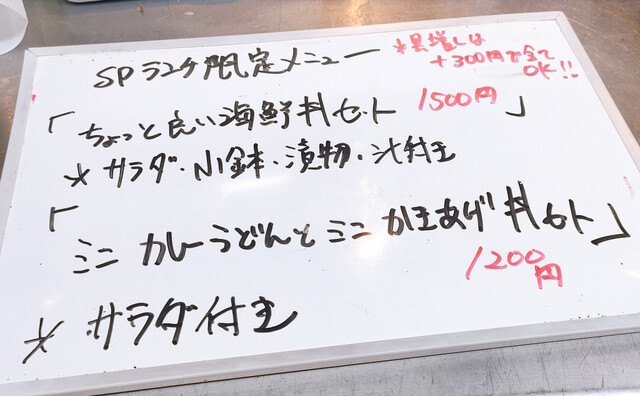 SPランチ限定メニュー
※具増しは
+300円で全て
OK!!
「ちょっと良い海鮮丼セット 1500円」
※サラダ・小鉢・漬物・汁付き
「ミニカレーうどんとミニかきあげ丼セット」
1200円
※サラダ付き